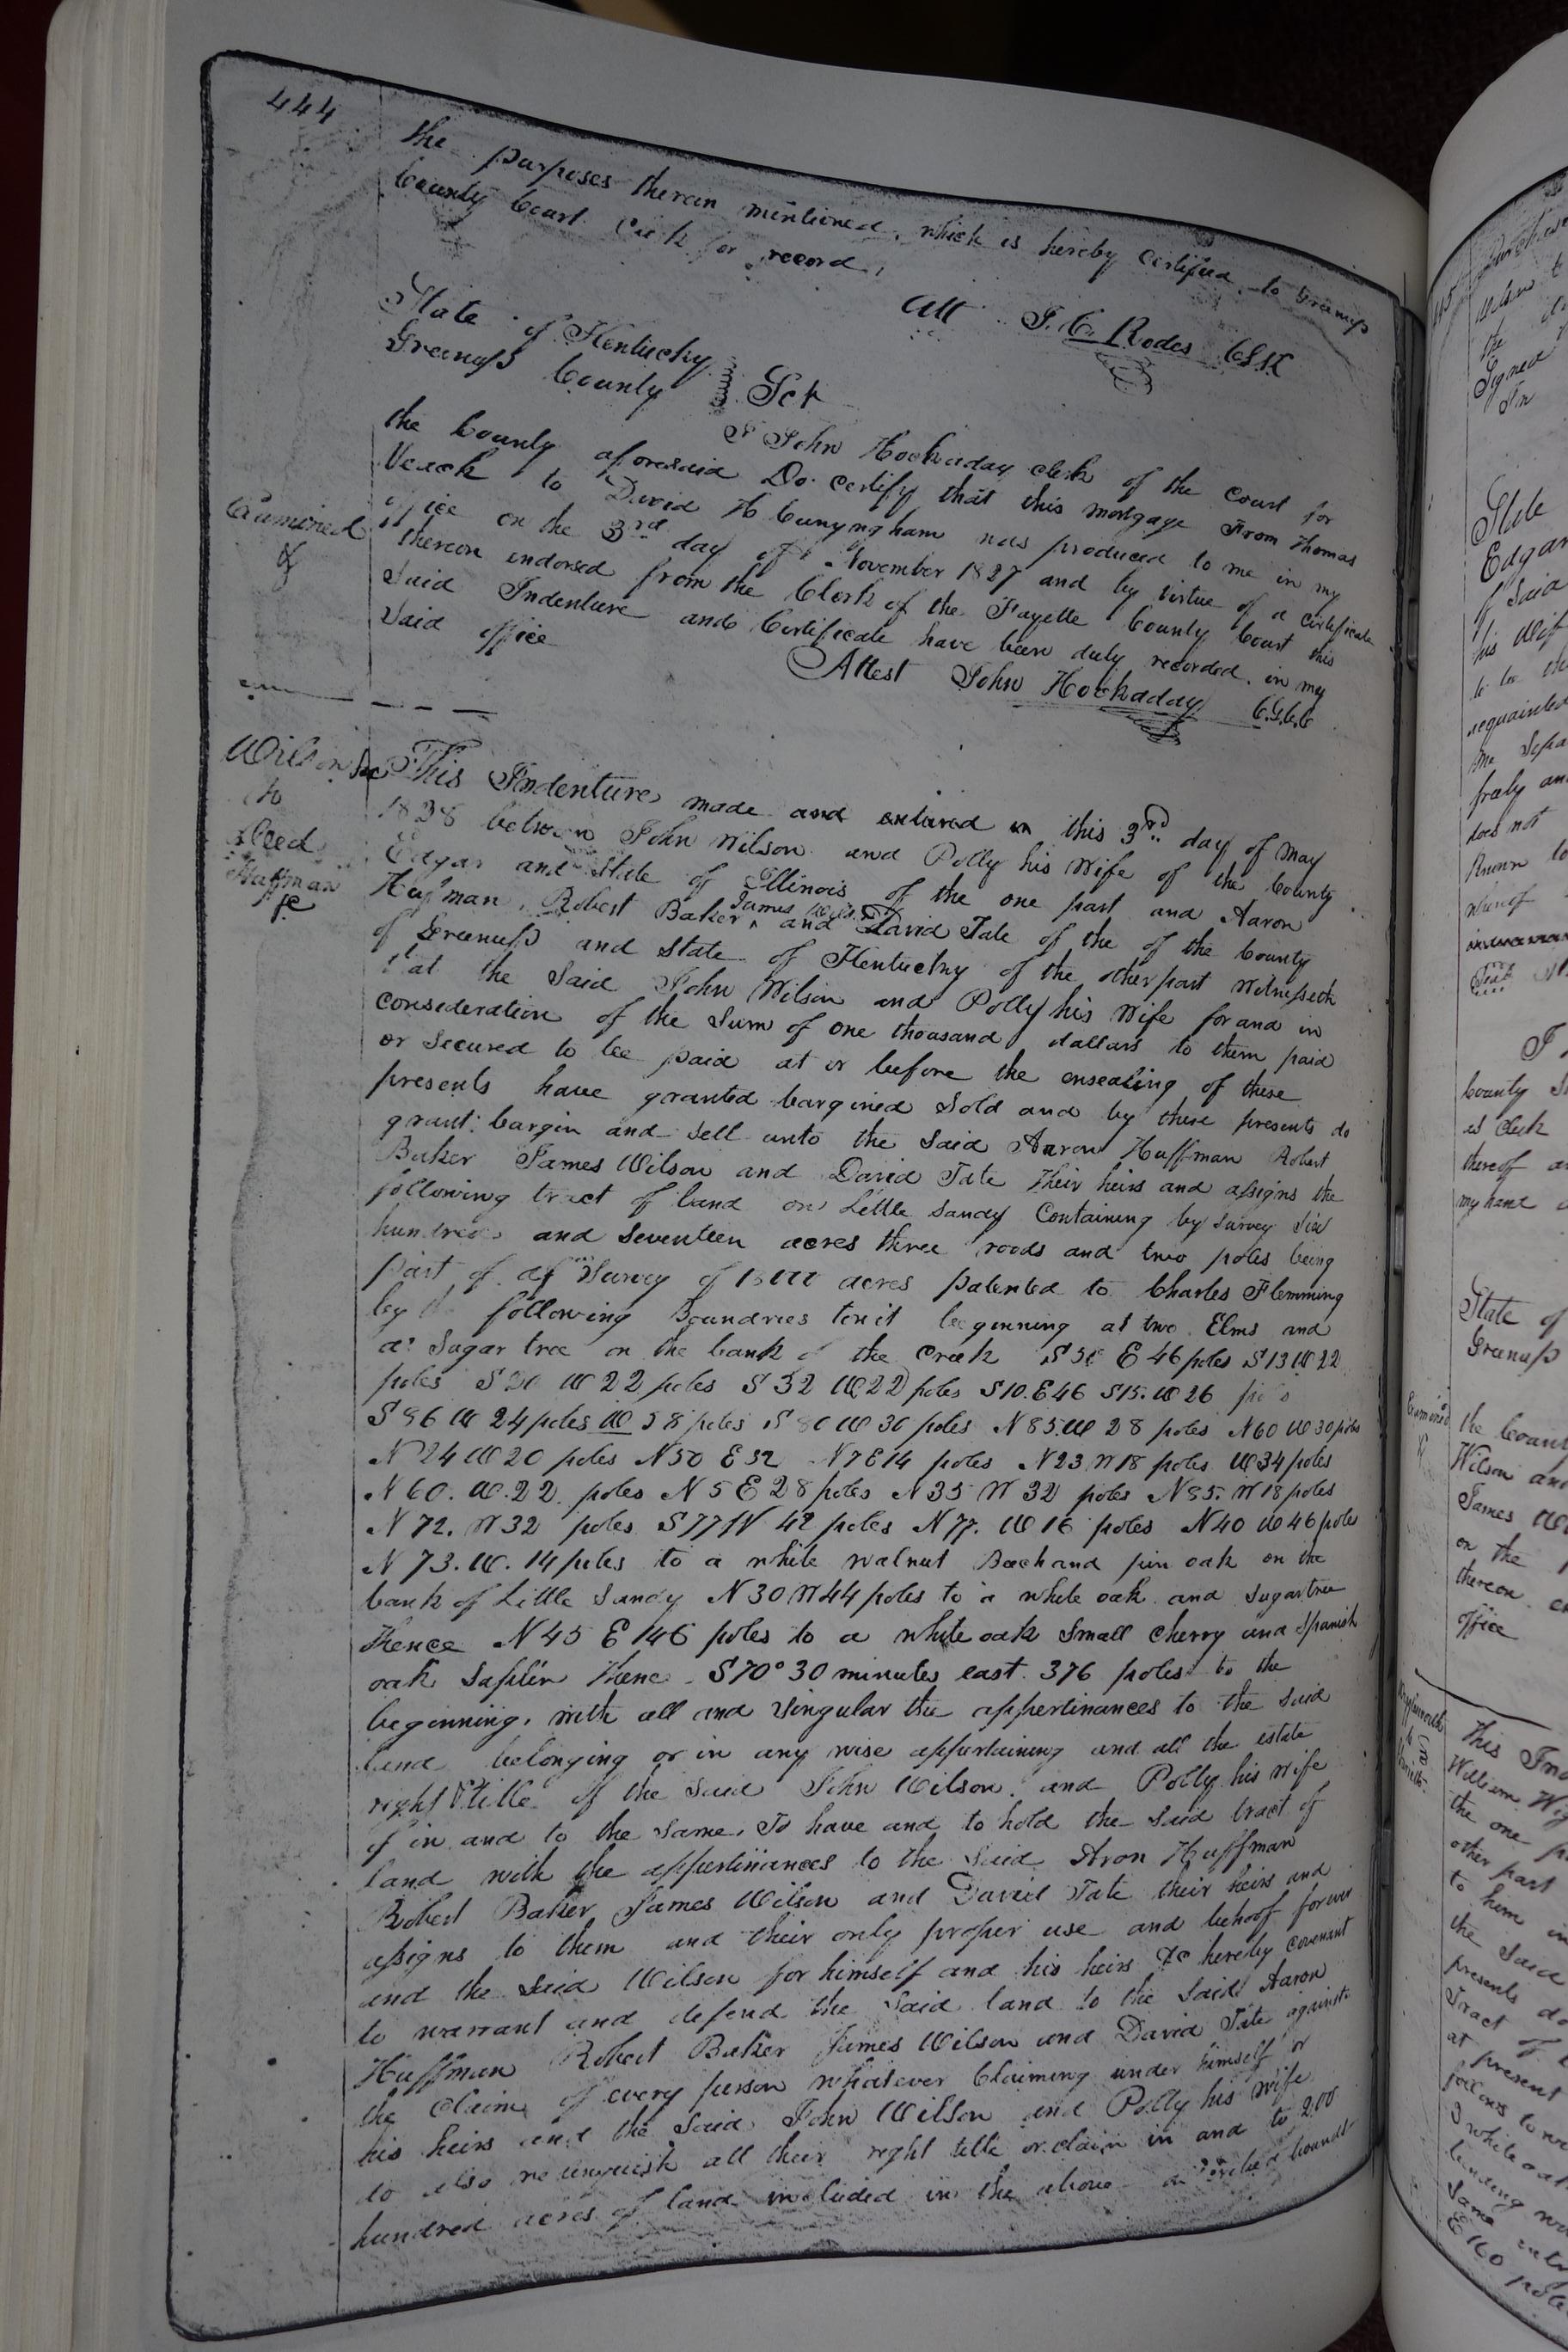 444
the purposes therein mentioned, which is hereby certified to Greenup
County Court Clerk for record,
Att J. C. Rodes CFCC
State of Kentucky
Greenup County Sct
I John Hockaday clerk of the court for
the County aforesaid Do certify that this mortgage From Thomas
Veach to David H Cunyngham was produced to me in my
office on the 3rd day of November 1827 and by virtue of a certificate
thereon endorsed from the Clerk of the Fayette County Court this
Said Indenture and Certificate have been duly recorded in my
Said office
Attest John Hockaday C.G.C.C
Examined
Wilson &c
to
Deed
Huffman
&c
This Indenture made and entered in this 3rd day of May
1828 between John Wilson and Polly his Wife of the County
Edgar and State of Illinois of the one part and Aaron
Huffman, Robert Baker James Wilson and David Tate of the of the County
of Greenup and State of Kentuckny of the other part Witnesseth
that the Said John Wilson and Polly his Wife for and in
consideration of the Sum of one thousand dollars to them paid
or Secured to be paid at or before the ensealing of these
presents have granted bargined Sold and by these presents do
grant bargin and Sell unto the Said Aaron Huffman Robert
Baker James Wilson and David Tate Their heirs and assigns the
following tract of land on Little Sandy Containing by Survey Six
hundred and Seventeen acres three roods and two poles being
part of a Survey of acres patented to Charles Flemming
by the following Boundries towit beginning at two Elms and
a Sugar tree on the bank of the Creek S 50 E 46 poles S 13 W 22
poles S 20 W 22 poles S 32 W 22 poles S10.E46 S15.W 26 poles
S 86 W 24 poles W 58 poles S 80 W 36 poles N 85.W 28 poles N60 W 30 poles
N 24 W 20 poles N50 E 52 N7E14 poles N23 W18 poles W34 poles
N 60. W.22. poles N 5 E 28 poles N 35 W 32 poles N85. W18 poles
N 72. W32 poles S77W 42 poles N77. W16 poles N40 W46 poles
N 73.W. 14 poles to a white walnut Beech and pin oak on the
bank of Little Sandy N 30 W44 poles to a white oak and Sugartree
Thence N45 E 146 poles to a white oak Small Cherry and Spanish
oak Saplin Thence S70°30 minutes east 376 poles to the
beginning, with all and Singular the appertinances to the Said
land belonging or in any wise appertaining and all the estate
right & title of the Said John Wilson and Polly his Wife
of in and to the Same, To have and to hold the Said tract of
land with the appertinances to the Said Aron Huffman
Robert Baker James Wilson and David Tate their heirs and
assigns to them and their only proper use and behoof forever
and the Said Wilson for himself and his heirs &c hereby Covenant
to warrant and defend the Said land to the Said Aaron
Huffman Robert Baker James Wilson and David Tate against
the Claim of every person whatever Claiming under himself or
his heirs and the Said John Wilson and Polly his wife
do also relinquish all their right title or claim in and to 200
hundred acres of land included in the above described bounds